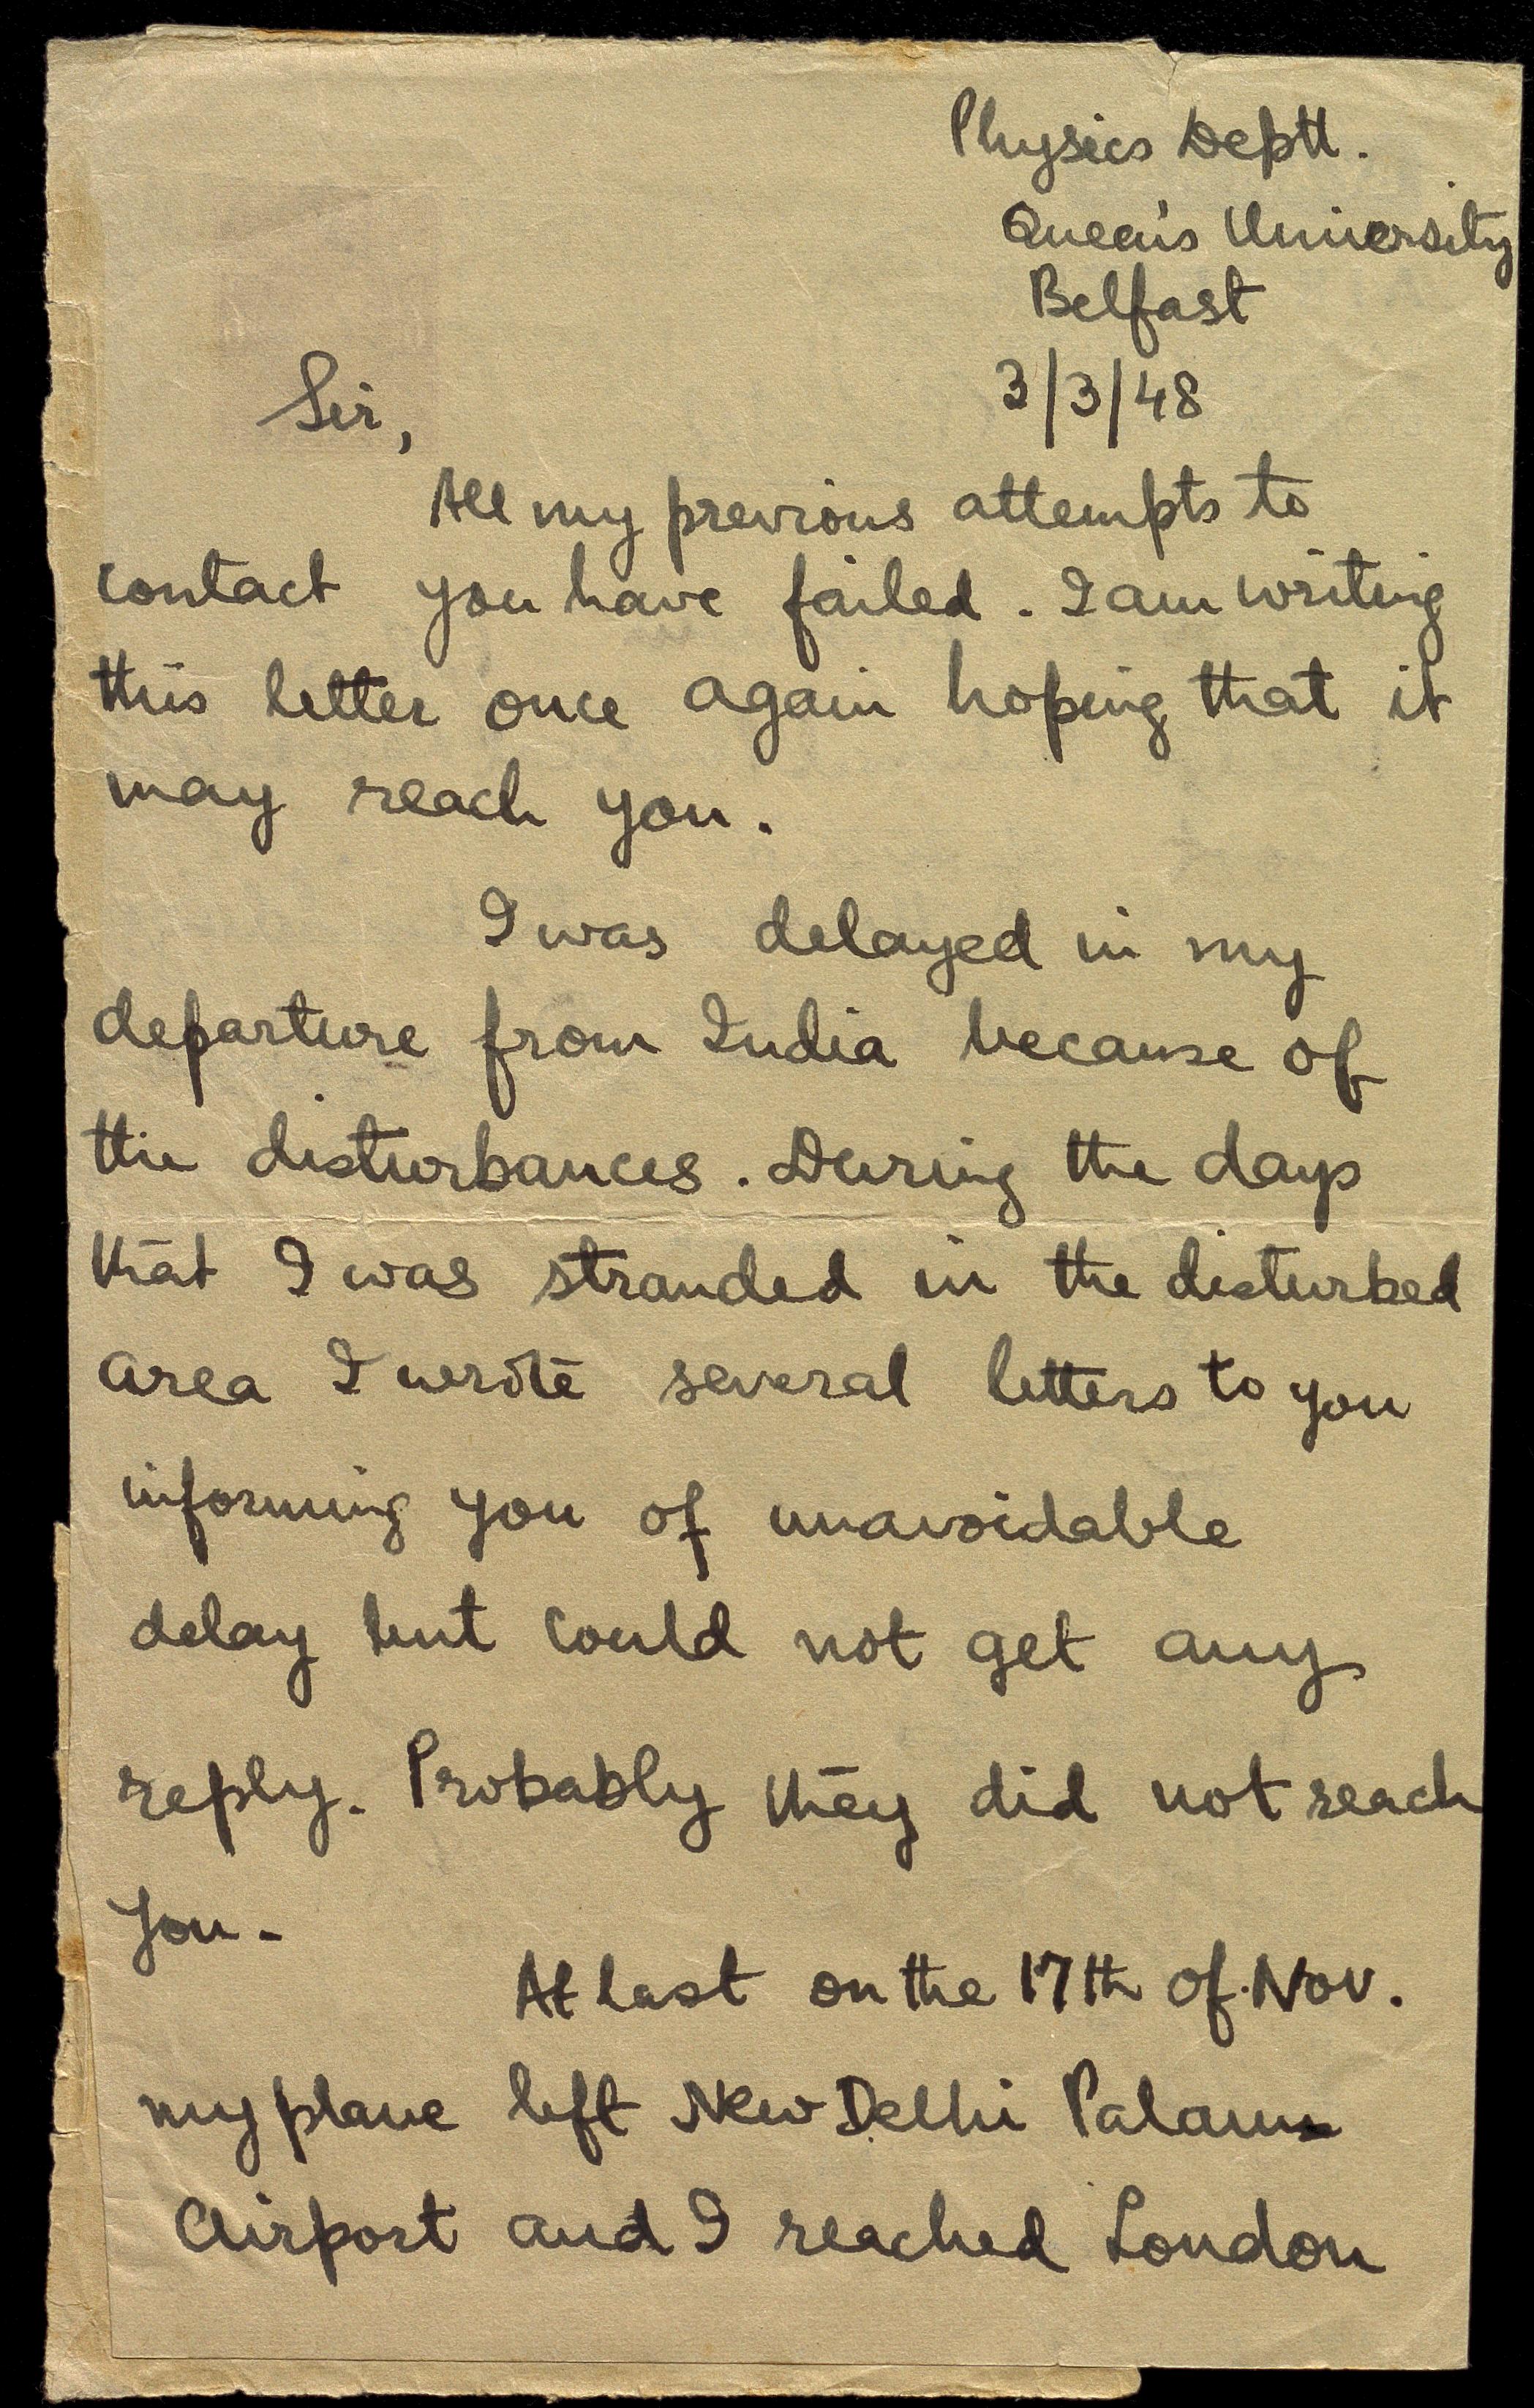 Physics Deptt.
Queen's University
Belfast
3/3/48
Sir,
All my previous attempts to
contact you have failed. I am writing
this letter once again hoping that it
may reach you.
I was delayed in my
departure from India because of
the disturbances. During the days
that I was stranded in the disturbed
area I wrote several letters to you
informing you of unavoidable
delay but could not get any
reply. Probably they did not reach
you.
At last on the 17th of Nov.
my plane left New Delhi Palam
Airport and I reached London